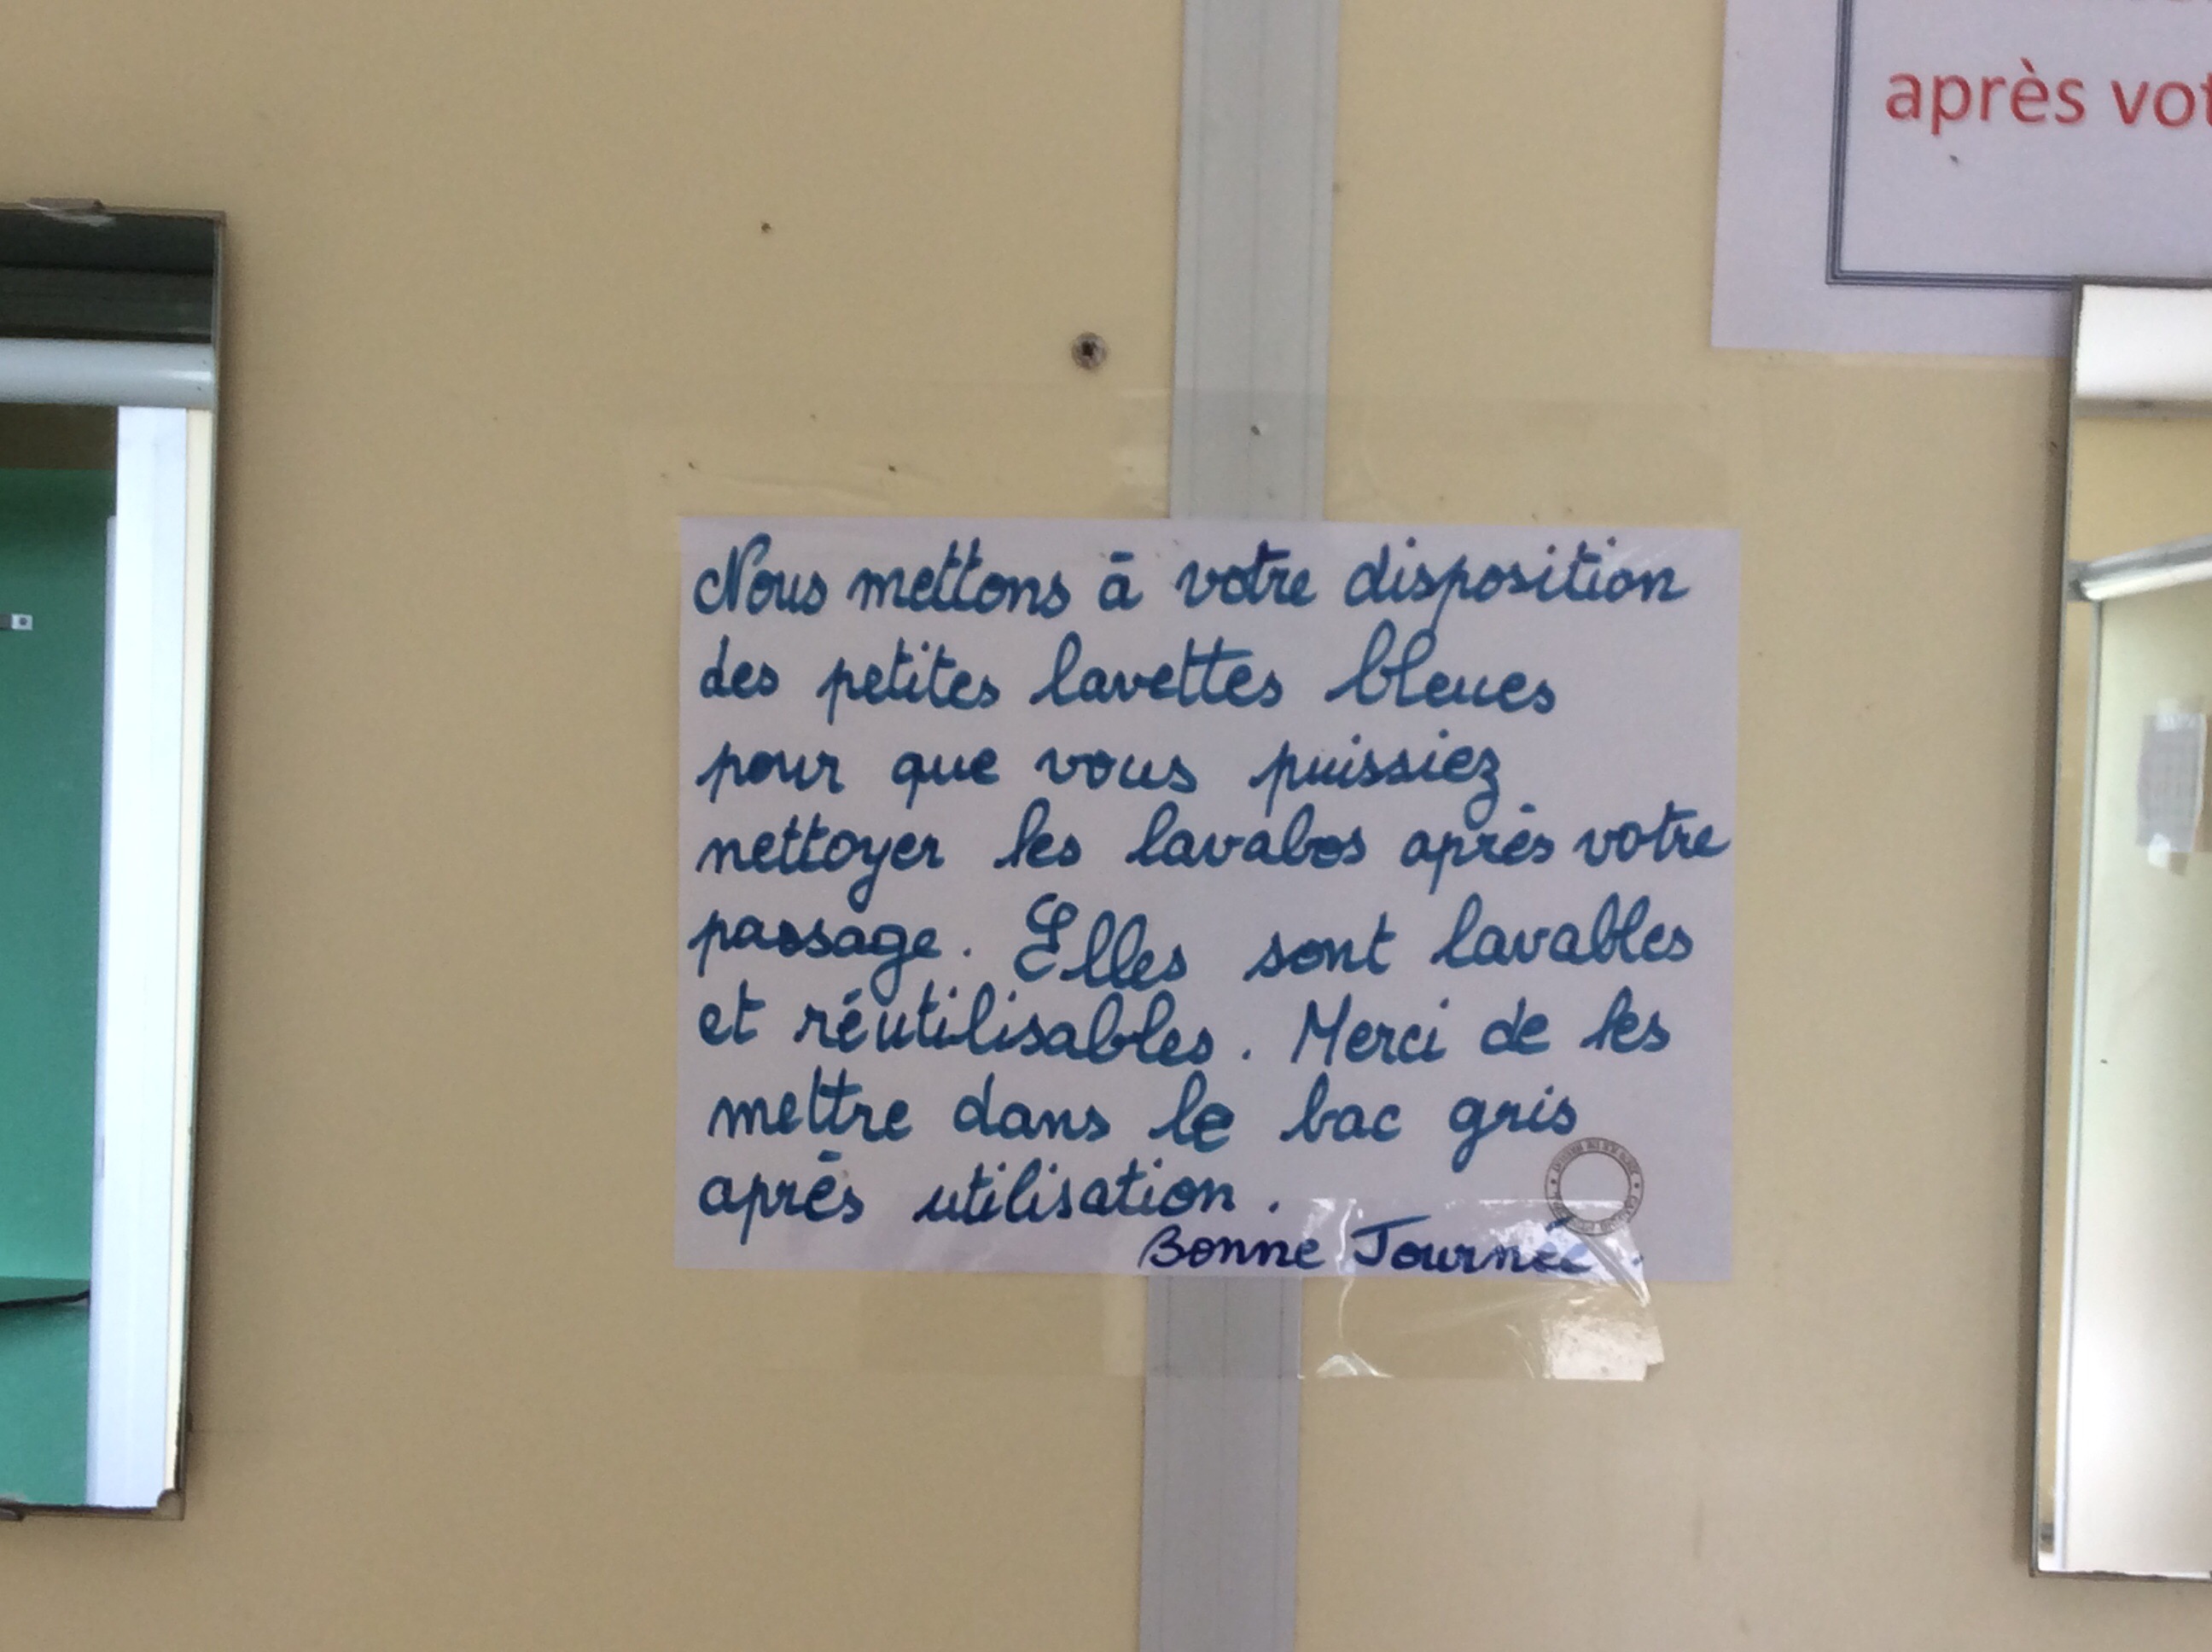 après
Nous mettons à votre disposition
des petites lavettes bleues
pour que vous puissiez
nettoyer les lavabos après votre
passage. Elles sont lavables
et réutilisables. Merci de les
mettre dans le bac gris
après utilisation.
Bonne Journée.